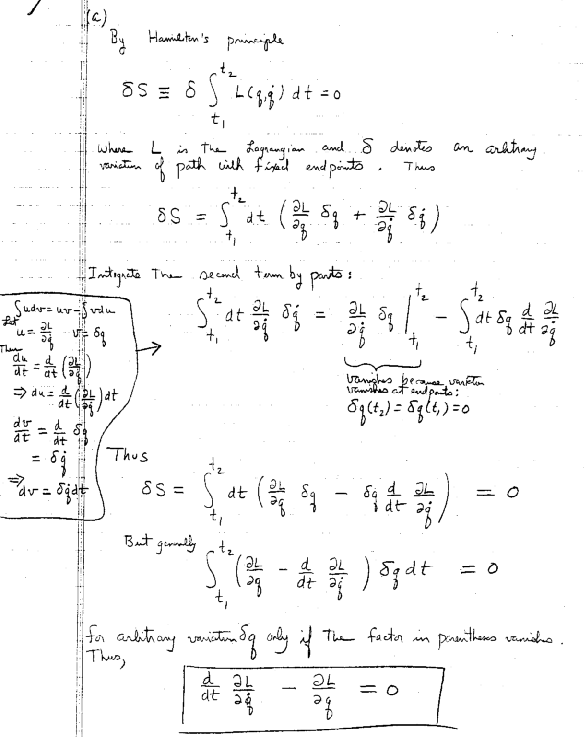 (a)
By Hamilton's principle
δS ≡ δ ∫_{t₁}^{t₂} L(q,q̇) dt = 0
where L is the Lagrangian and δ denotes an arbitrary
variation of path with fixed endpoints. Thus
δS = ∫_{t₁}^{t₂} dt (∂L/∂q δq + ∂L/∂q̇ δq̇)
Integrate the second term by parts:
∫_{t₁}^{t₂} dt ∂L/∂q̇ δq̇ = ∂L/∂q̇ δq |_{t₁}^{t₂} - ∫_{t₁}^{t₂} dt δq d/dt ∂L/∂q̇
vanishes because variation
vanishes at endpoints:
δq(t₂) = δq(t₁) = 0
∫udv = uv - ∫vdu
Let
u = ∂L/∂q̇ v = δq
Then
du/dt = d/dt (∂L/∂q̇)
⇒ du = d/dt (∂L/∂q̇) dt
dv/dt = d/dt δq
= δq̇
⇒ dv = δq̇dt
→
Thus
δS = ∫_{t₁}^{t₂} dt (∂L/∂q δq - δq d/dt ∂L/∂q̇) = 0
But generally
∫_{t₁}^{t₂} (∂L/∂q - d/dt ∂L/∂q̇) δq dt = 0
for arbitrary variation δq only if the factor in parentheses vanishes.
Thus,
d/dt ∂L/∂q̇ - ∂L/∂q = 0